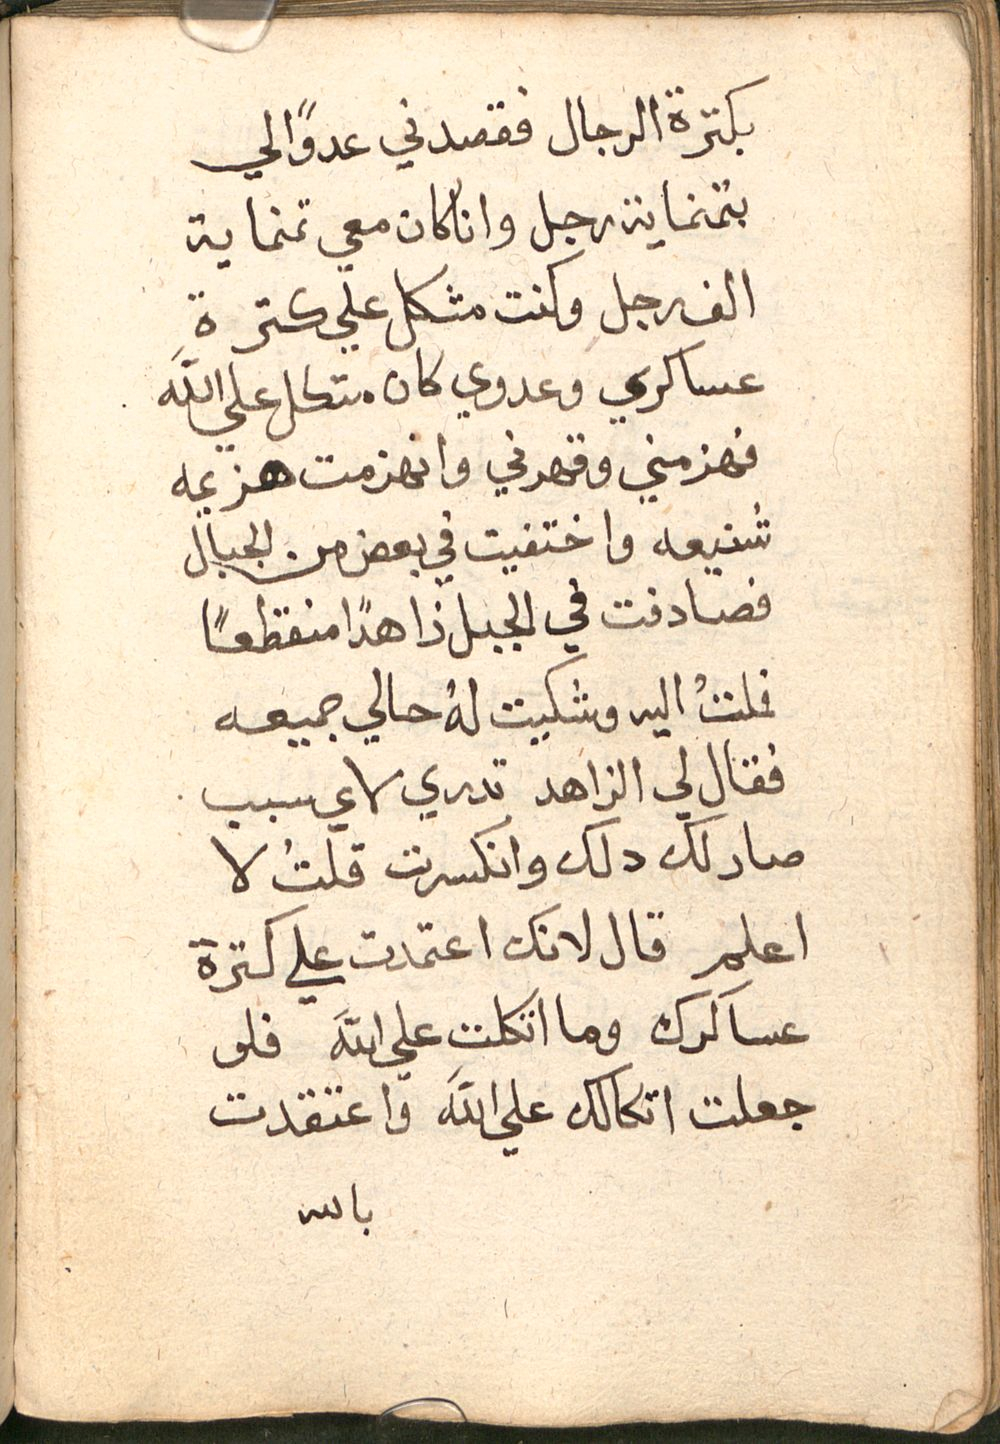 بكترة الرجال فقصدني عدوًا لي
بتمنماية رجل وانا كان معي تمنماية
الف رجل وكنت متكل علي كترة
عساكري وعدوي كان متكل علي الله
فهزمني وقهرني وانهزمت هزيمه
شنيعه واختفيت في بعض من الجبال
فصادفت في الجبل زاهدًا منقطعًا
فملتُ اليه وشكيت لهُ حالي جميعه
فقال لي الزاهد تدري لاي سبب
صار لك دلك وانكسرت قلتُ لا
اعلم قال لانك اعتمدت علي كترة
عساكرك وما اتكلت علي الله فلو
جعلت اتكالك علي الله واعتقدت
بالله